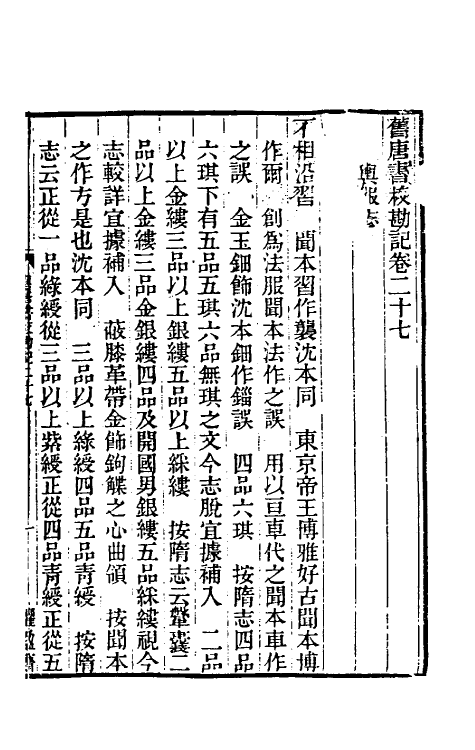 舊唐書校勘記卷二十七
輿服志
不相沿習　聞本習作襲沈本同　東京帝王博雅好古聞本博
作爾　創爲法服聞本法作之誤　用以亘車代之聞本車作
之誤　金玉鈿飾沈本鈿作錙誤　四品六琪　按隋志四品
六琪下有五品五琪六品無琪之文今志脫宜據補入　二品
以上金縷三品以上銀縷五品以上綵縷　按隋志云鞶囊二
品以上金縷三品金銀縷四品及開國男銀縷五品綵縷視今
志較詳宜據補入　蔽膝革帶金飾鉤䚢之心曲領　按聞本
之作方是也沈本同　三品以上綠綬四品五品青綬　按隋
志云正從一品綠綬從三品以上紫綬正從四品青綬正從五